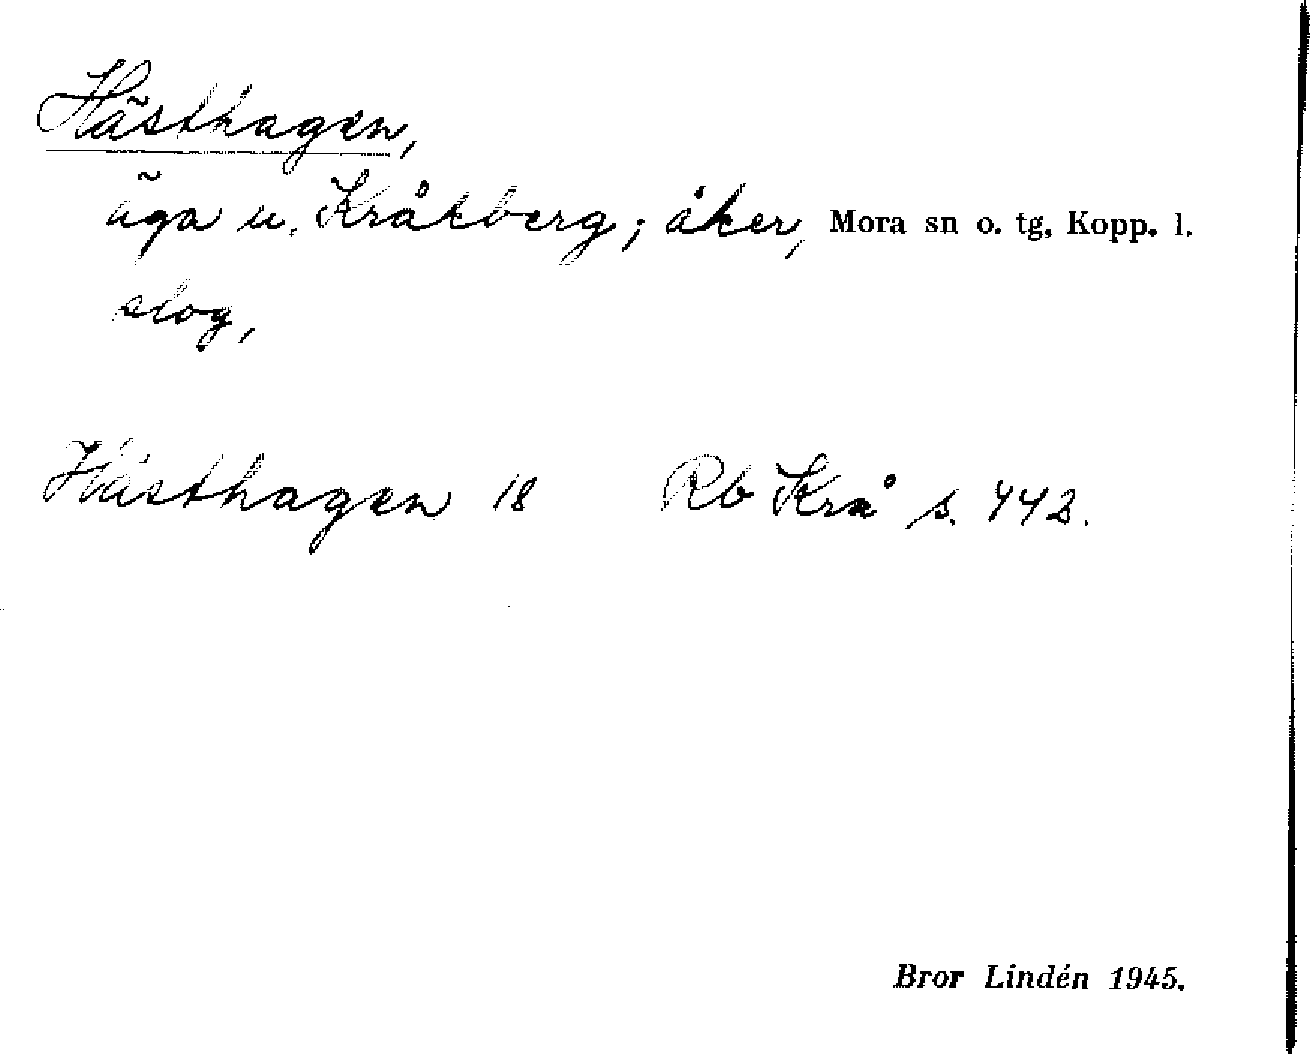 Hästhagen,
äga u. Kråkberg; åker, Mora sn o. tg, Kopp. l.
slog,
Hästhagen 18 Rb Krå s. 442.
Bror Lindén 1945.